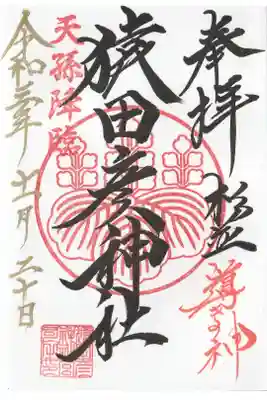 奉拝
導きの神
猿田彦神社
天孫降臨
令和 年 十一月 二十日